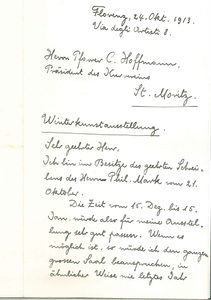 Florenz, 24. Okt. 1913.
Via degli Artisti 8.
Herrn Pfarrer C. Hoffmann.
Präsident des Kurvereins
St. Moritz.
Winterkunstausstellung.
Sehr geehrter Herr.
Ich bin im Besitze des geehrten Schrei-
bens des Herrn Phil. Mark vom 21.
Oktober.
Die Zeit vom 15. Dez. bis 15.
Jan. würde also für meine Ausstel-
lung sehr gut passen. Wenn es
möglich ist, so würde ich den ganzen
grossen Saal beanspruchen, in
ähnlicher Weise wie letztes Jahr